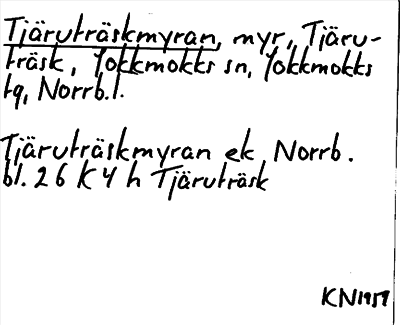 Tjäruträskmyran, myr, Tjäru-
träsk, Jokkmokks sn, Jokkmokks
tg, Norrb.l.
Tjäruträskmyran ek, Norrb.
bl. 26 K 4 h Tjäruträsk
KN 1959